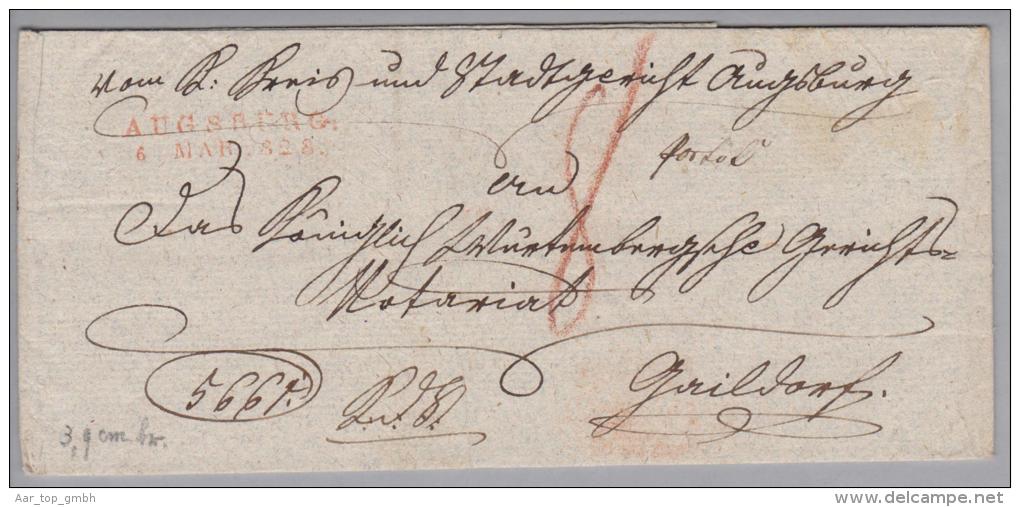 vom K: Kreis und Stadtgericht Augsburg
AUGSBURG.
6 MAR 828.
an
Das Königlich Würtembergsche Gerichts-
Notariat
5661.
Gaildorf.
3,9 cm br.
Aar_top_gmbh
www.delcampe.net